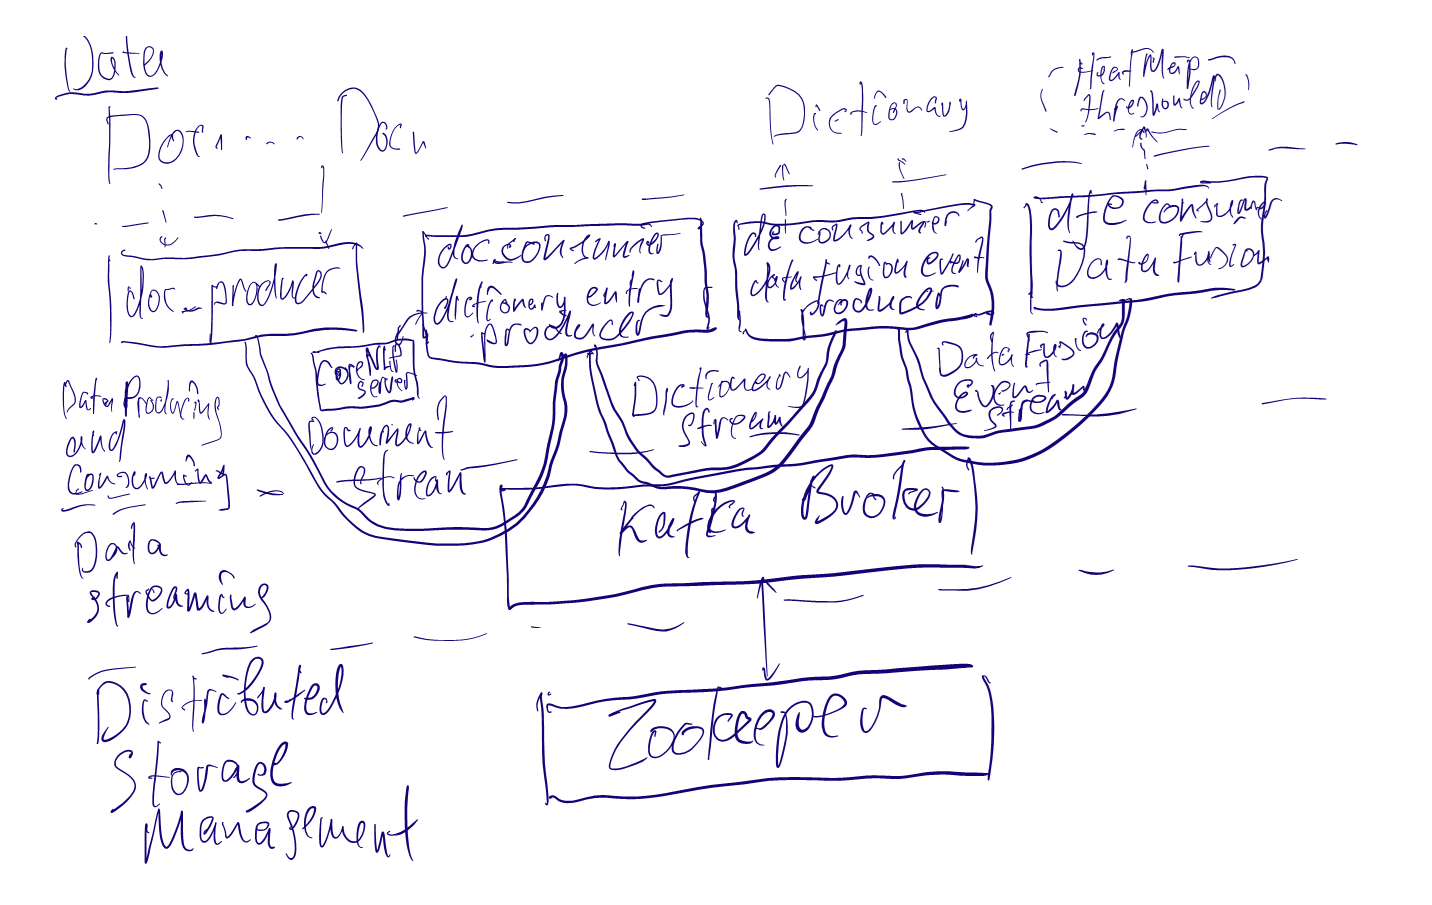 Data
Doc1 .... Docn
Dictionary
HeatMap
threshould)
doc_producer
doc_consumer
dictionary entry
producer
CoreNLP
server
de consumer
data fusion event
producer
dfe consumer
Data Fusion
Data Producing
and
Consuming
Document
Stream
Dictionary
Stream
Data Fusion
Event
Stream
Kafka Broker
Data
streaming
Zookeeper
Distributed
Storage
Management